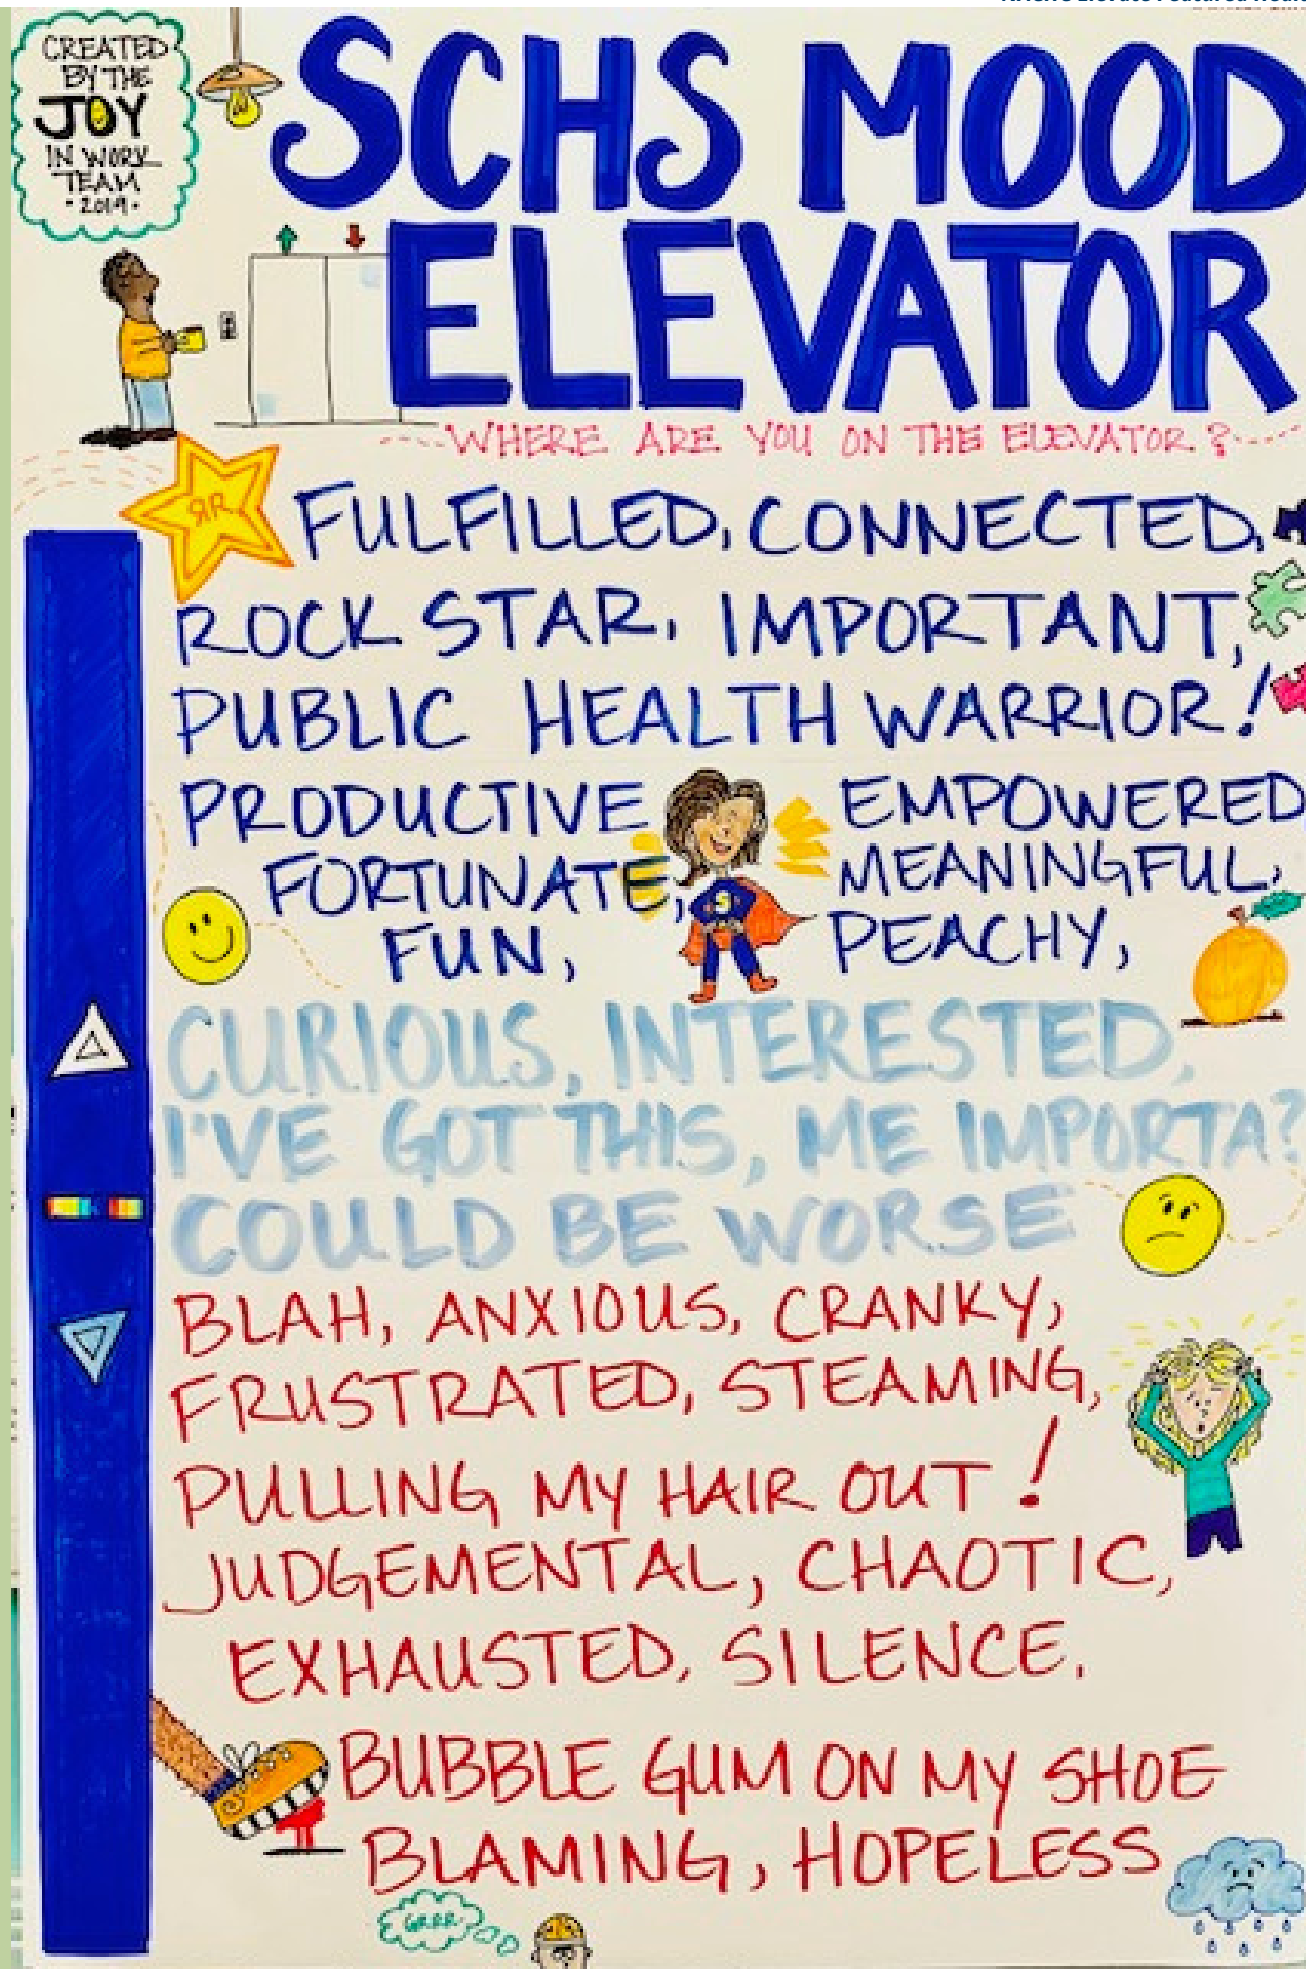 CREATED
BY THE
JOY
IN WORK
TEAM
· 2019 ·
SCHS MOOD
ELEVATOR
WHERE ARE YOU ON THE ELEVATOR?
RR
FULFILLED, CONNECTED,
ROCK STAR, IMPORTANT,
PUBLIC HEALTH WARRIOR!
PRODUCTIVE EMPOWERED
FORTUNATE, MEANINGFUL,
S
FUN, PEACHY,
CURIOUS, INTERESTED,
I'VE GOT THIS, ME IMPORTA?
COULD BE WORSE
BLAH, ANXIOUS, CRANKY,
FRUSTRATED, STEAMING,
PULLING MY HAIR OUT!
JUDGEMENTAL, CHAOTIC,
EXHAUSTED, SILENCE,
BUBBLE GUM ON MY SHOE
BLAMING, HOPELESS
GRRR